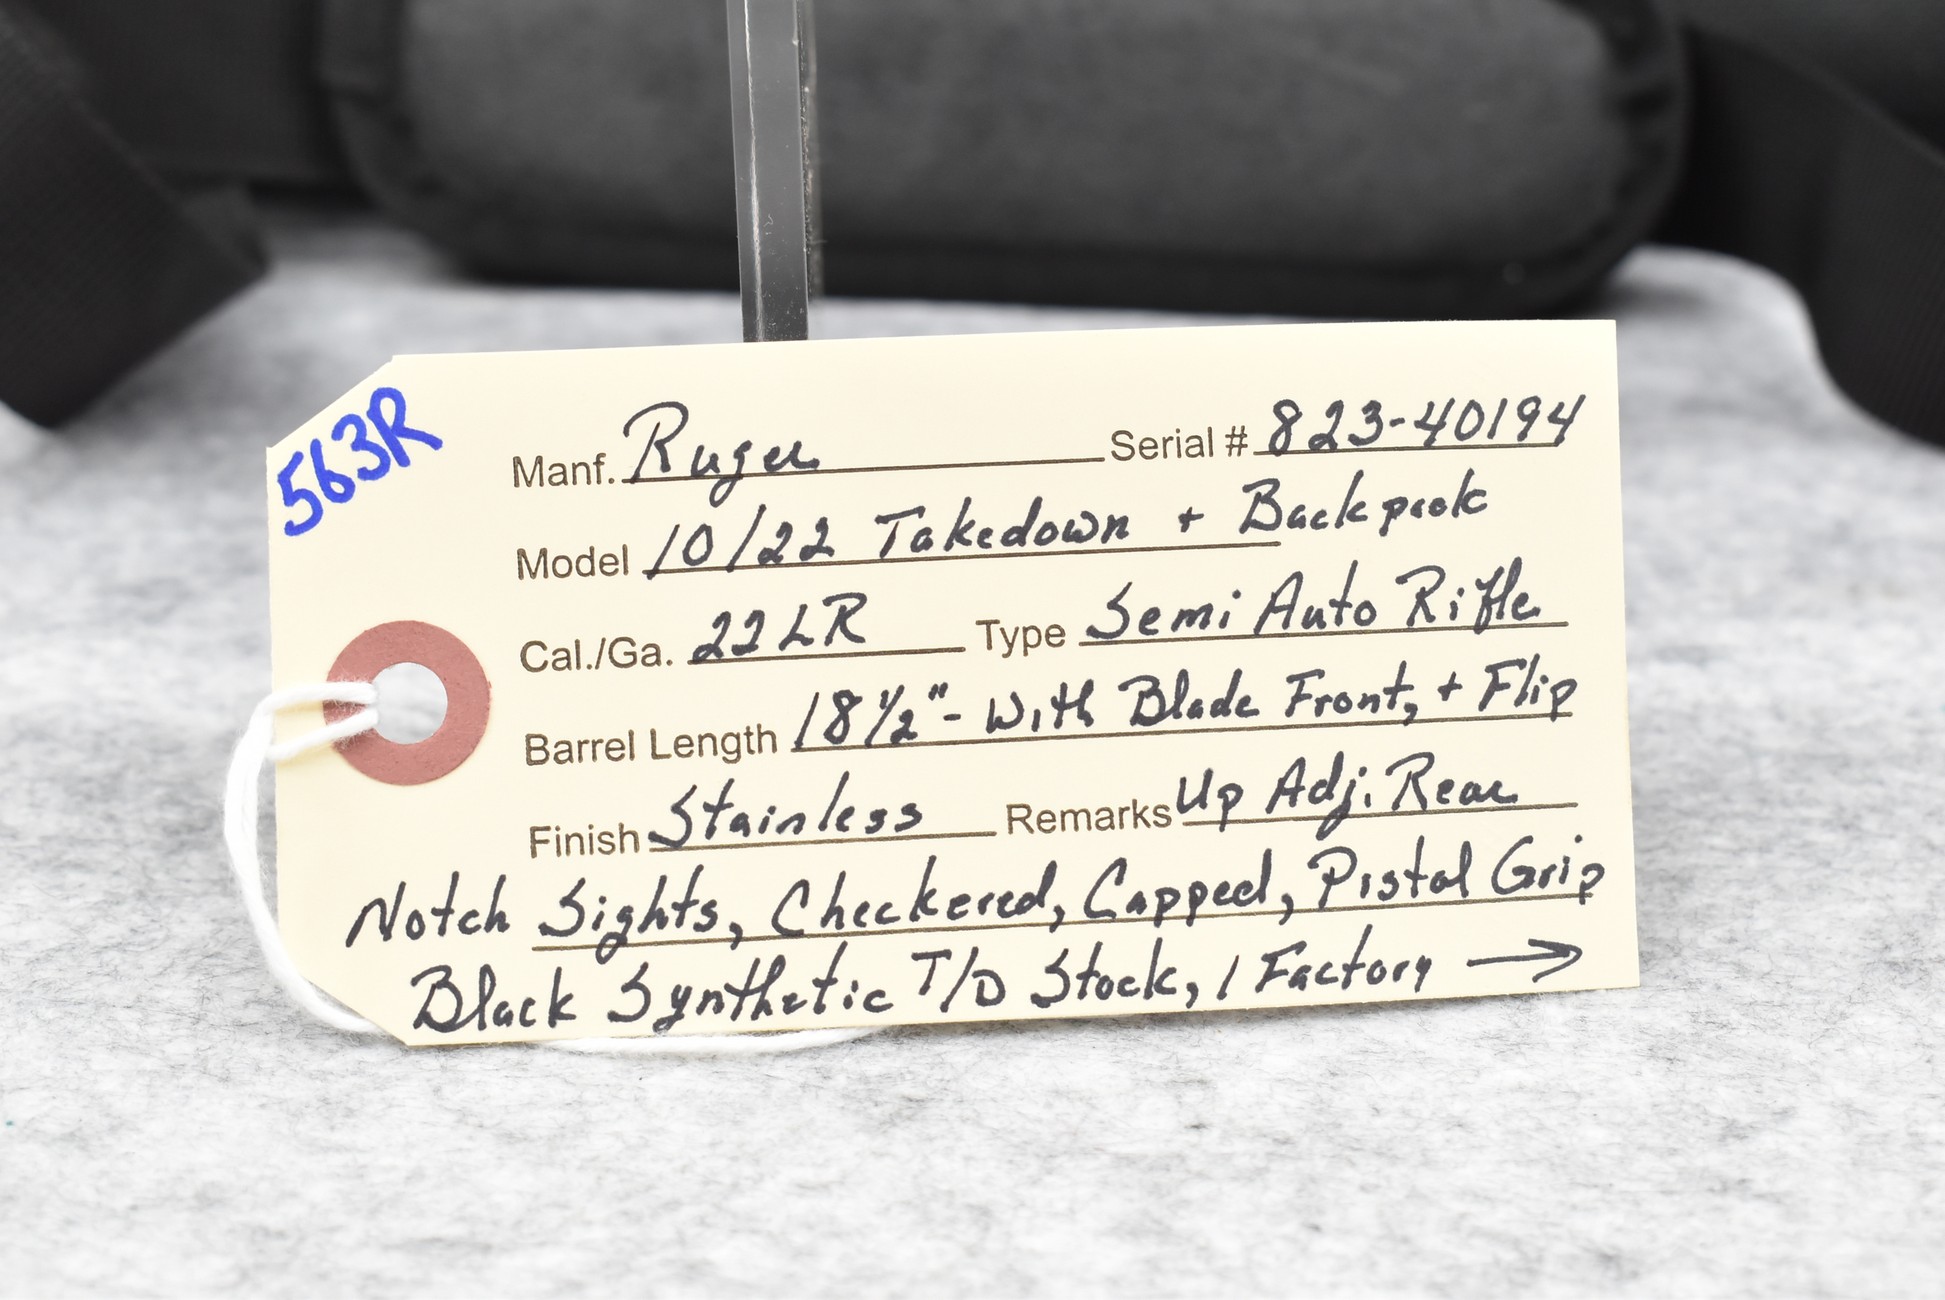 563R
Manf. Ruger Serial # 823-40194
Model 10/22 Takedown + Backpack
Cal./Ga. 22LR Type Semi Auto Rifle
Barrel Length 18 1/2" - With Blade Front, + Flip
Finish Stainless Remarks Up Adj. Rear
Notch Sights, Checkered, Capped, Pistol Grip
Black Synthetic T/D Stock, 1 Factory →